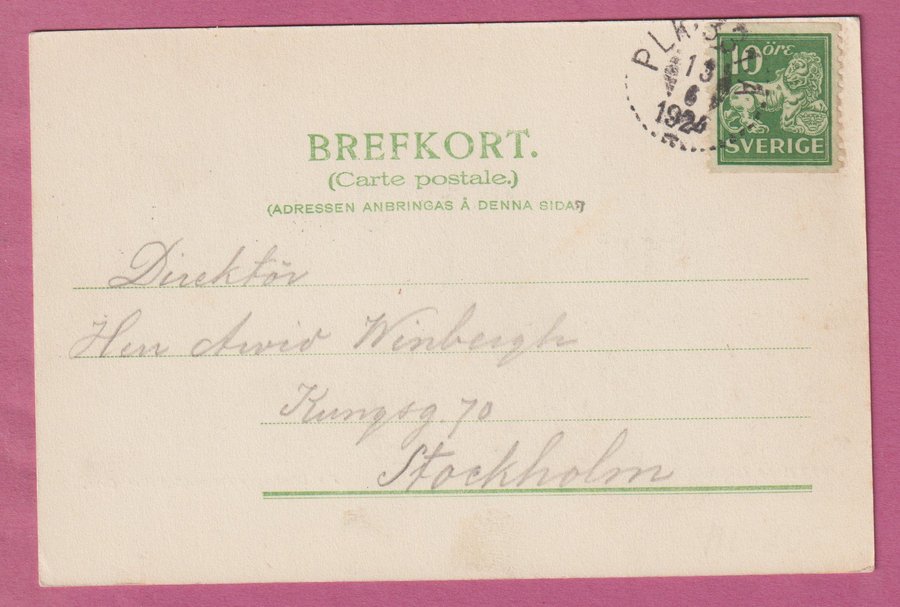 10 öre
SVERIGE
PLK.
13
6
1924
BREFKORT.
(Carte postale.)
(ADRESSEN ANBRINGAS Å DENNA SIDA.)
Direktör
Herr Arvid Winbergh
Kungsg. 70
Stockholm